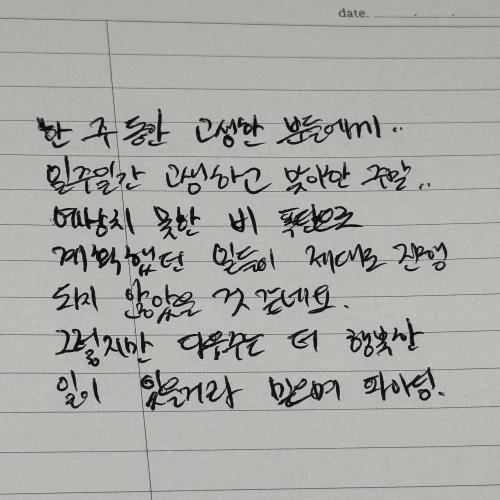 date. . .
한 주 동안 고생한 분들에게..
일주일간 고생하고 맞이한 주말..
예상치 못한 비 폭탄으로
계획했던 일들이 제대로 진행
되지 않았을 것 같네요.
그렇지만 다음주는 더 행복한
일이 있을거라 믿으며 파이팅.